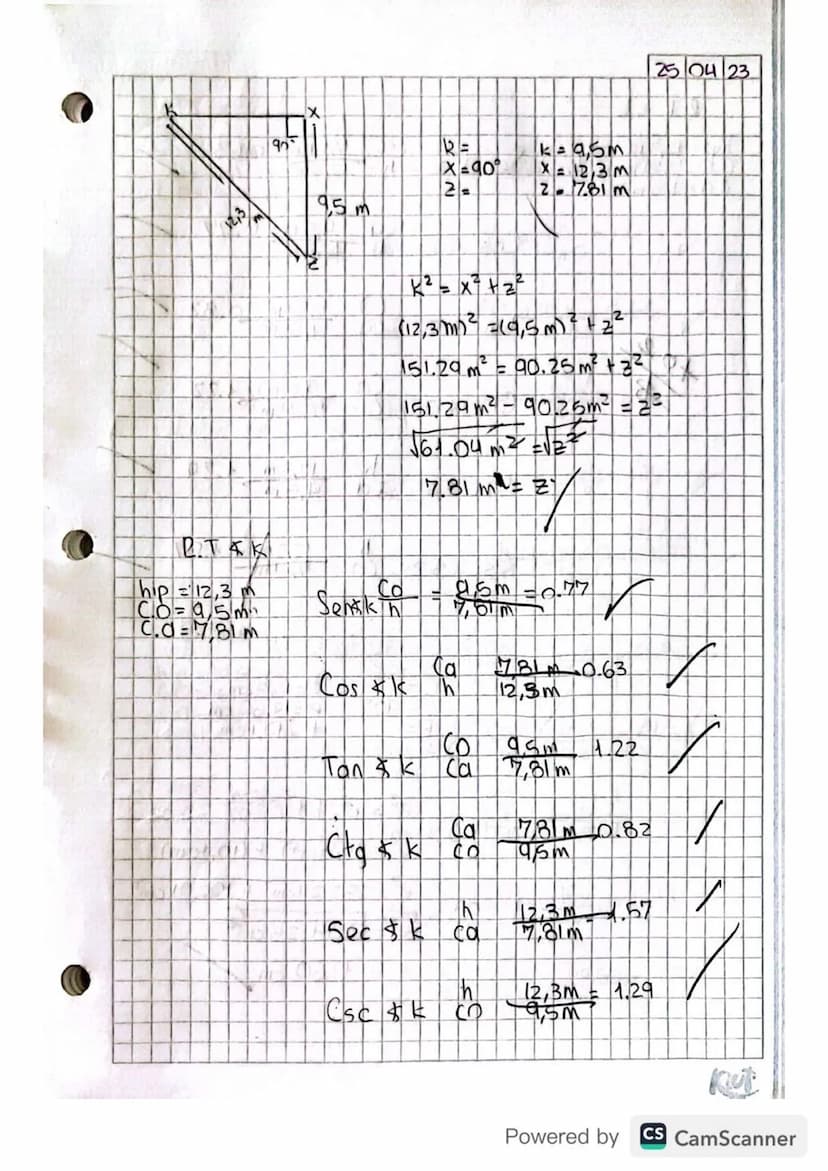 25 | 04 | 23
K
X
90°
12,3 m
9,5 m
Z
K =
X = 90°
Z =
k = 9,5m
x = 12,3 m
z = 7.81 m
k² = x² + z²
(12,3m)² = (9,5m)² + z²
151.29 m² = 90.25 m² + z²
151.29 m² - 90.25m² = z²
√61.04 m² = √z²
7.81 m = z
R.T ∢ K
hip = 12,3 m
C.O = 9,5m
C.a = 7,81 m
Sen∢k Co/h = 9,5m/7,81m = 0.77
Cos ∢k Ca/h 7,81m/12,3m 0.63
Tan ∢ k Co/Ca 9,5m/7,81m 1.22
Ctg ∢ k Ca/co 7,81m/9,5m 0.82
Sec ∢ k h/ca 12,3m/7,81m 1.57
Csc ∢k h/co 12,3m/9,5m = 1.29
Powered by CS CamScanner